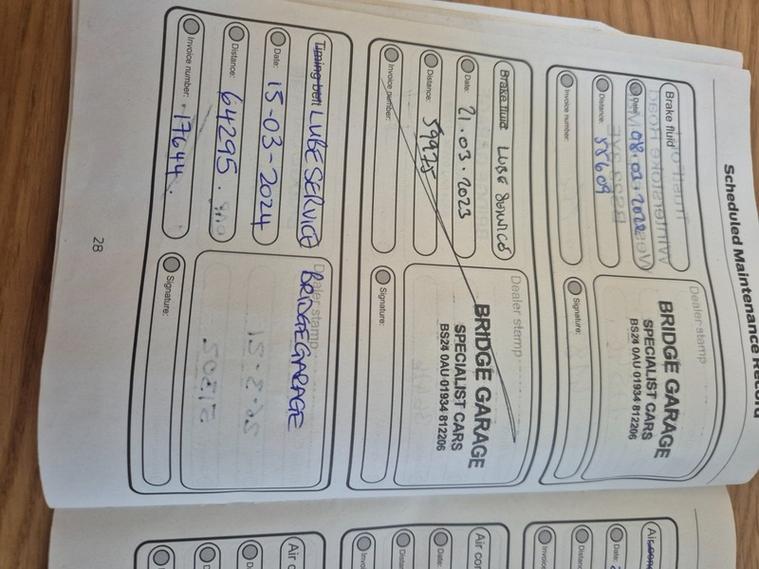 Scheduled Maintenance Record
Brake fluid
Date: 08.03.2022
Distance: 55609
Invoice number:
Dealer stamp
BRIDGE GARAGE
SPECIALIST CARS
BS24 0AU 01934 812206
Signature:
Brake fluid LUBE SERVICE
Date: 21.03.2023
Distance: 59975
Invoice number:
Dealer stamp
BRIDGE GARAGE
SPECIALIST CARS
BS24 0AU 01934 812206
Signature:
Timing belt LUBE SERVICE
Date: 15-03-2024
Distance: 64295.
Invoice number: 17644.
Dealer stamp
BRIDGE GARAGE
Signature:
28
Air con
Date:
Distance:
Invoice
Air con
Date:
Distance:
Invoice
Air c